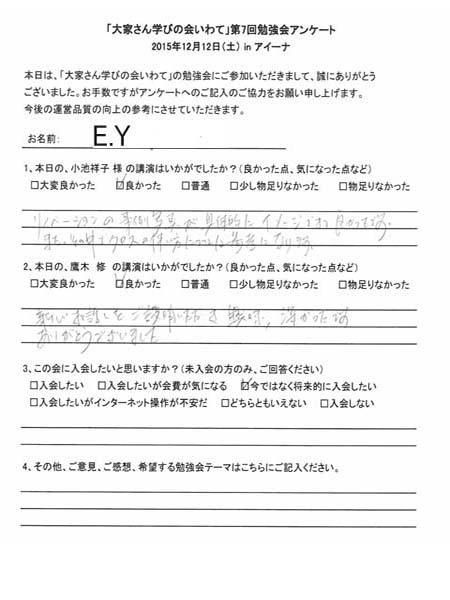 「大家さん学びの会いわて」第7回勉強会アンケート
2015年12月12日(土) in アイーナ
本日は、「大家さん学びの会いわて」の勉強会にご参加いただきまして、誠にありがとう
ございました。お手数ですがアンケートへのご記入のご協力をお願い申し上げます。
今後の運営品質の向上の参考にさせていただきます。
お名前: E.Y
1、本日の、小池祥子 様 の講演はいかがでしたか?(良かった点、気になった点など)
□大変良かった ☑良かった □普通 □少し物足りなかった □物足りなかった
リノベーションの事例写真が具体的にイメージできて良かったです。
また、の中でクロスの使い方について参考になりました
2、本日の、鷹木 修 の講演はいかがでしたか?(良かった点、気になった点など)
□大変良かった ☑良かった □普通 □少し物足りなかった □物足りなかった
お話しをご説明いただき
ありがとうございました
3、この会に入会したいと思いますか?(未入会の方のみ、ご回答ください)
□入会したい □入会したいが会費が気になる ☑今ではなく将来的に入会したい
□入会したいがインターネット操作が不安だ □どちらともいえない □入会しない
4、その他、ご意見、ご感想、希望する勉強会テーマはこちらにご記入ください。